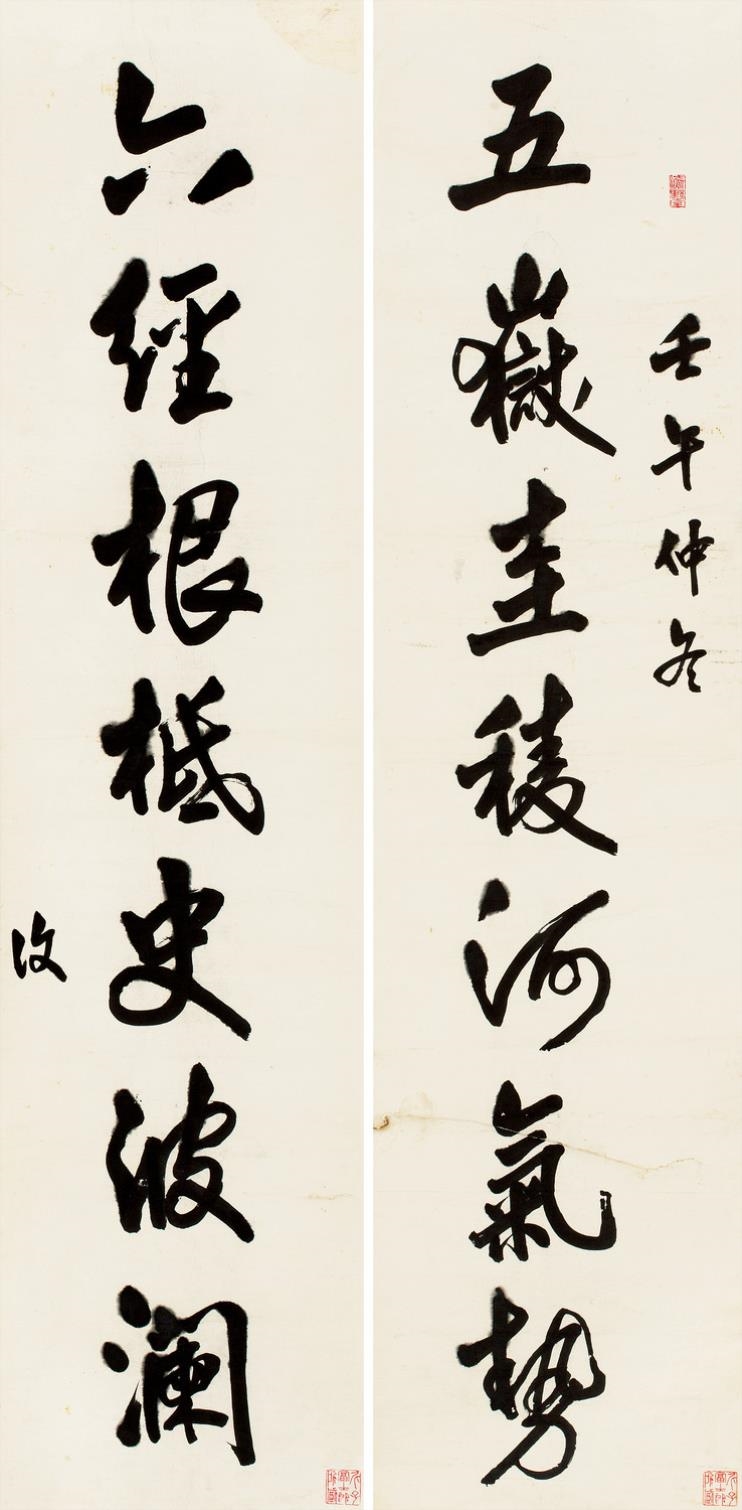 壬午仲冬
五嶽圭稜河氣勢
六經根柢史波瀾